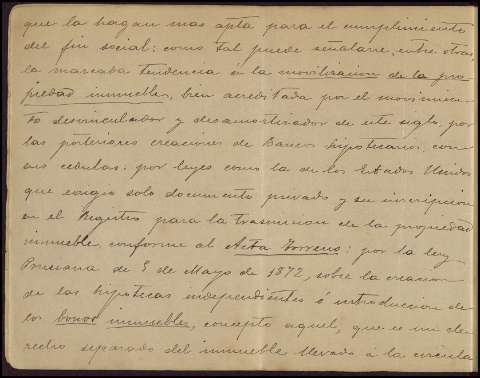 que la hagan mas apta para el cumplimiento
del fin social: como tal puede señalarse, entre otras,
la marcada tendencia a la movilizacion de la pro
piedad inmueble, bien acreditada por el movimien-
to desvinculador y desamortizador de este siglo, por
las posteriores creaciones de Bancos hipotecarios, con
sus cedulas: por leyes como la de los Estados Unidos
que exigio solo documento privado y su inscripcion
en el Registro para la trasmision de la propiedad
inmueble, conforme al Acta Torrens: por la ley
Prusiana de 5 de Mayo de 1872, sobre la creacion
de las hipotecas independientes é introduccion de
los bonos inmuebles, concepto aquel, que es un de
recho separado del inmueble llevado á la circula